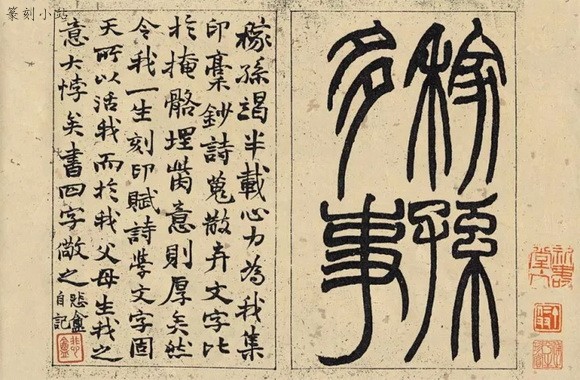 篆刻小站
稼孫
多事
稼孫竭半載心力為我集
印稾鈔詩蒐散弃文字比
於掩骼埋胔意則厚矣然
令我一生刻印賦詩學文字固
天所以活我而於我父母生我之
意大悖矣書四字儆之
悲盦
自記